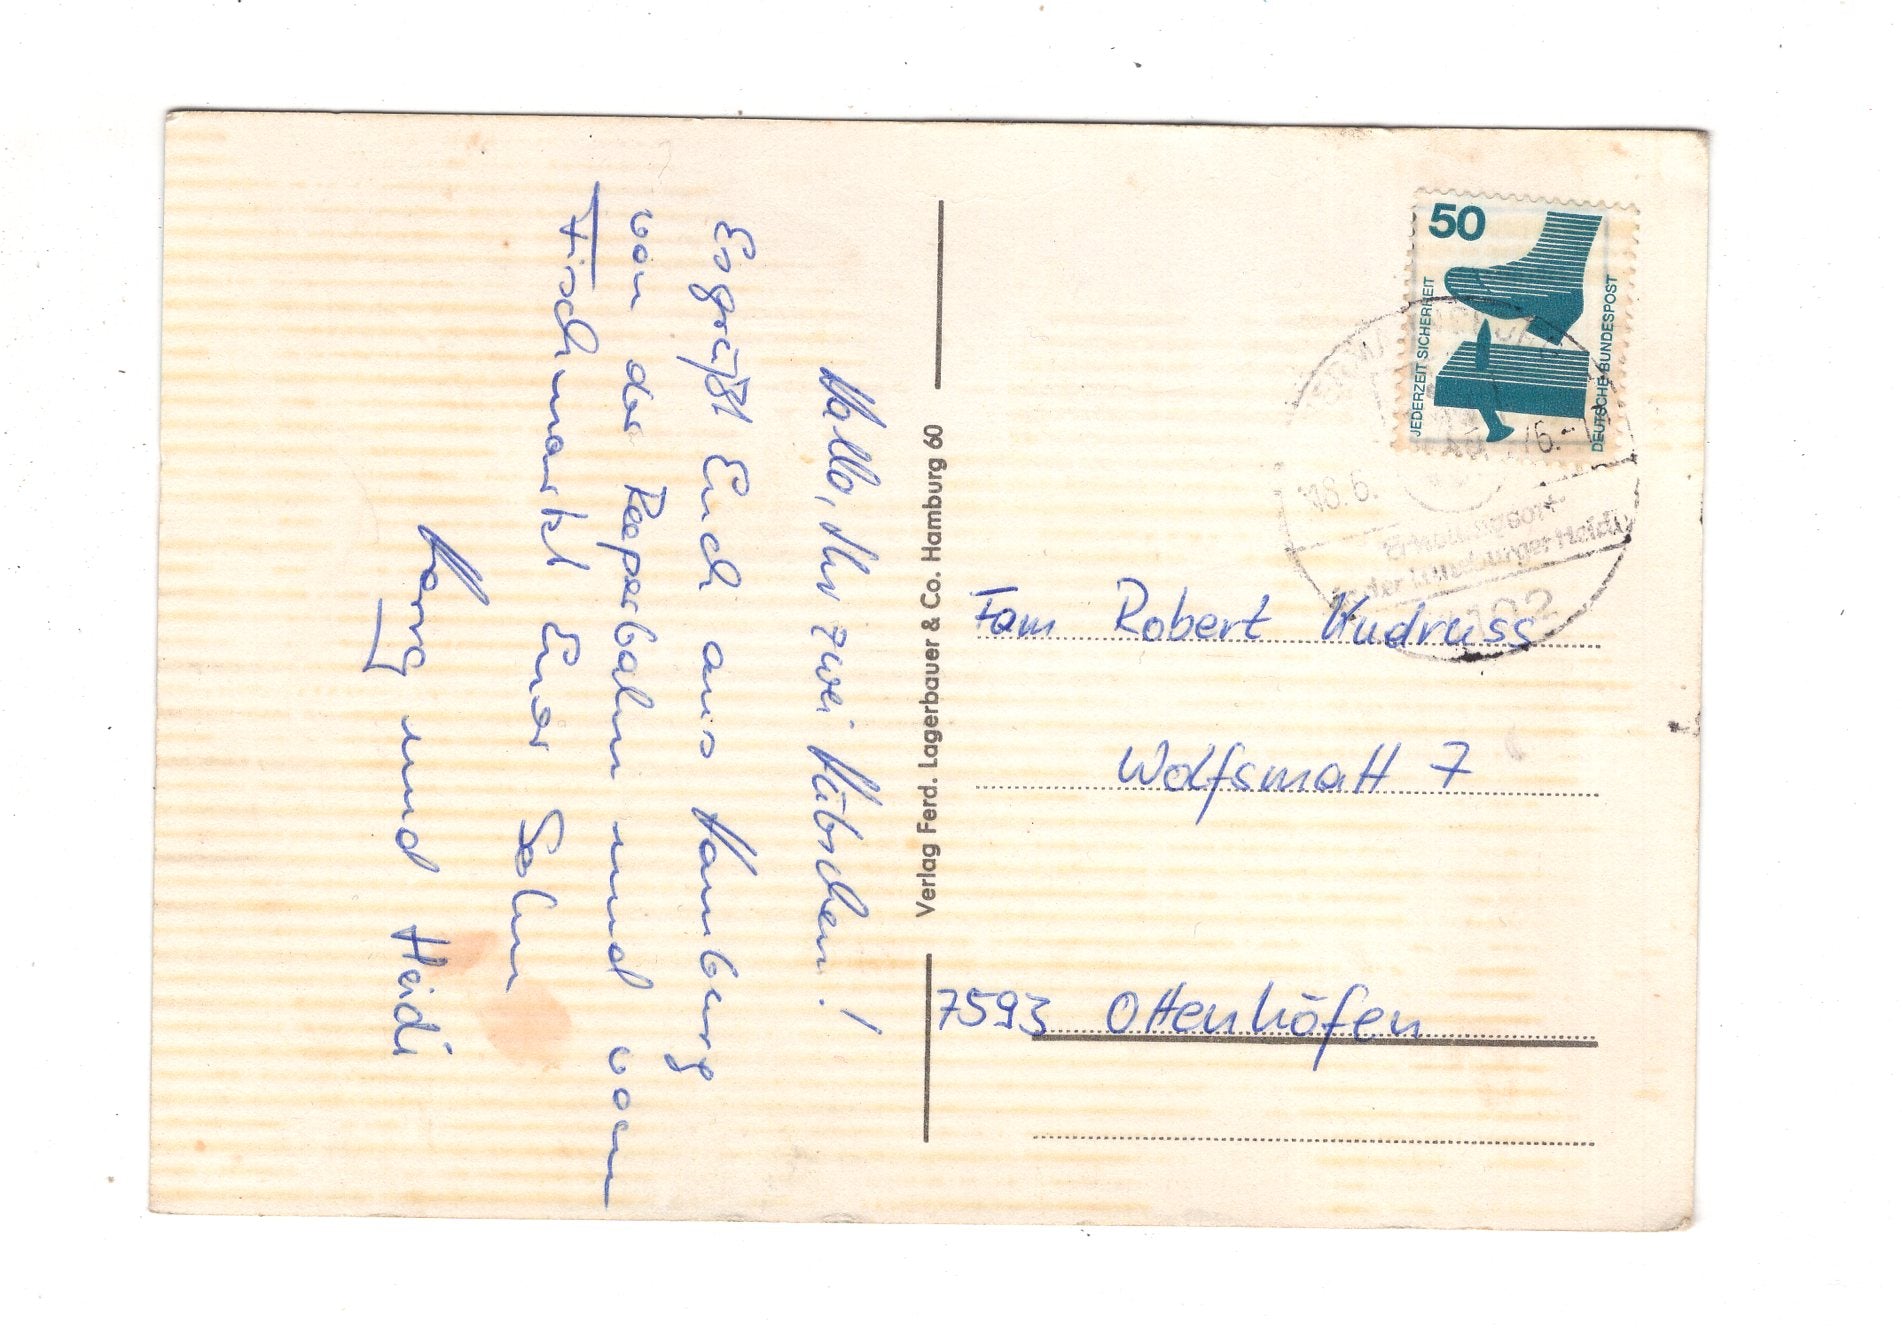 Hallo, Ihr zwei Hübschen!
Es grüßt Euch aus Hamburg
von der Reeperbahn und vom
Fischmarkt Euer Sohn
und Heidi
Verlag Ferd. Lagerbauer & Co. Hamburg 60
50
JEDERZEIT SICHERHEIT
DEUTSCHE BUNDESPOST
18.6.
Erholungsort
in der Lüneburger Heide
Fam Robert Hudruss
Wolfsmatt 7
7593 Ottenhöfen